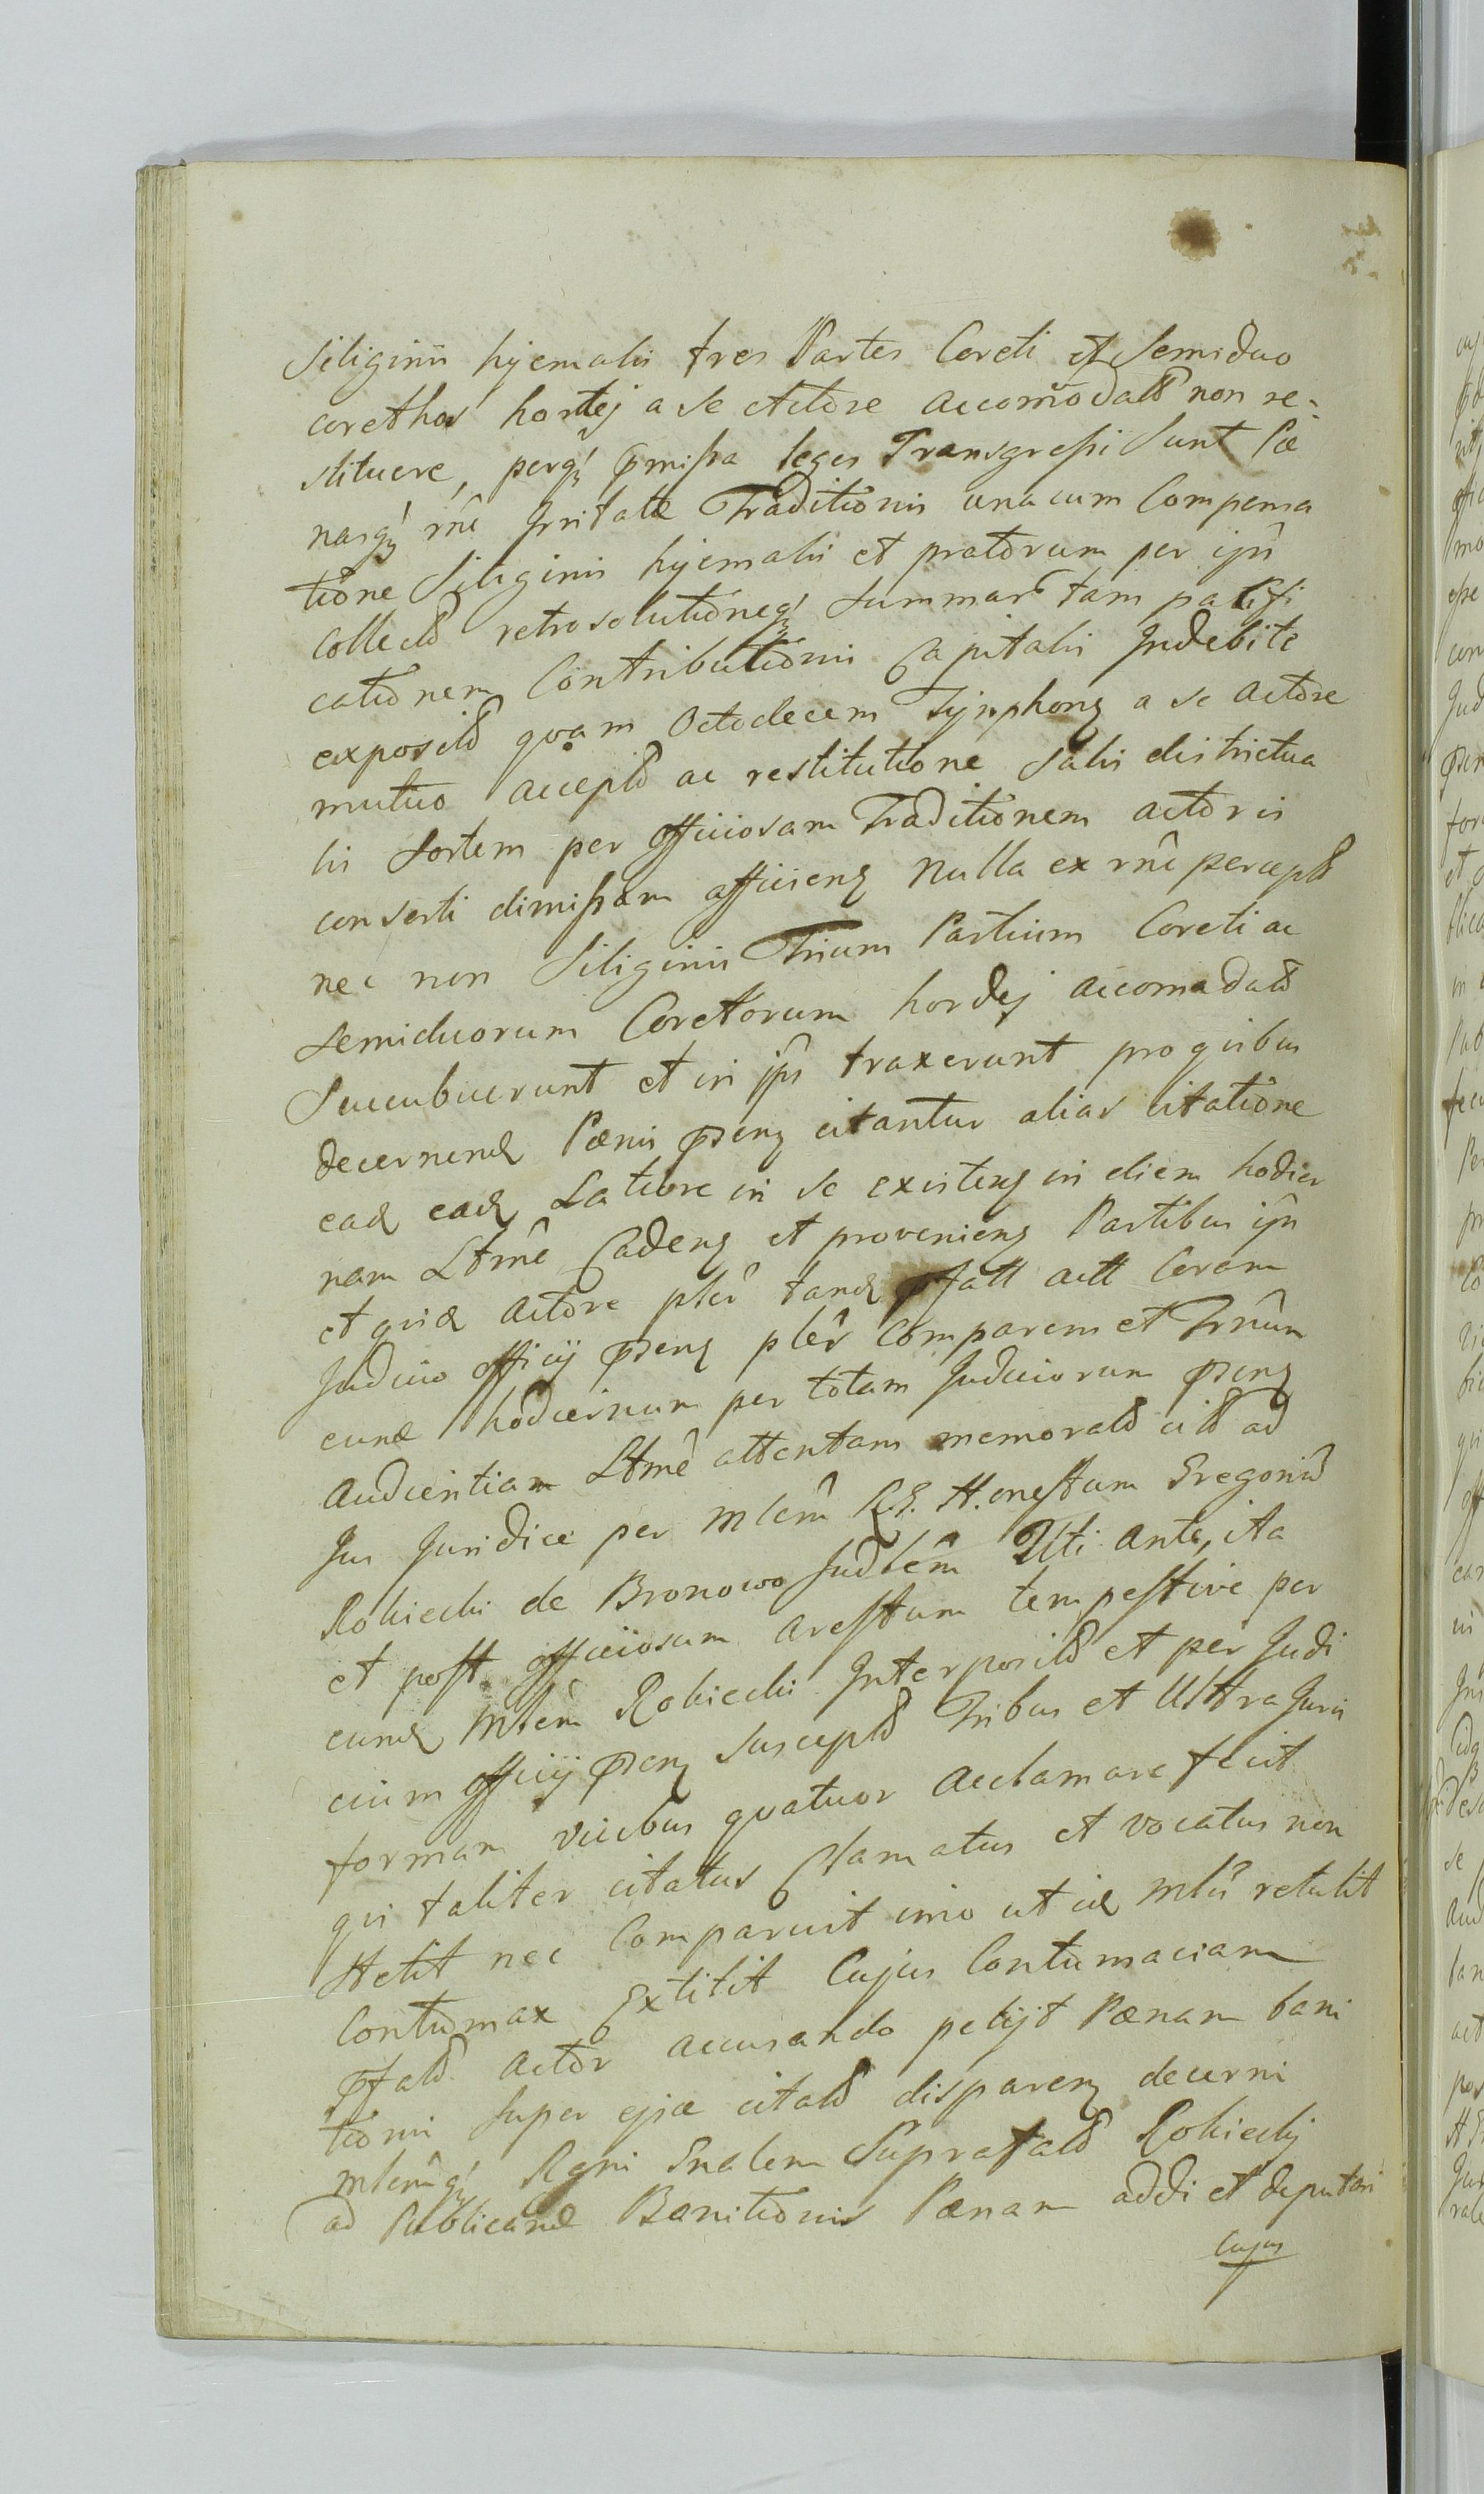 Siliginis hyemalis tres Partes Coreti et Semiduo
corethos hordej a se Actore accomodatt non re-
stituere, perq́ pmissa leges Transgressi sunt Pæ
nasq́ rñe Irritatæ Traditionis una cum Compensa
tione Siliginis hyemalis et pratorum per ipñ
collectt retrosolutioneq́ summar tam pa
cationem Contributionis Capitalis Indebite
exposit quam Octodecem Tynphonz a se actore
mutuo accept ac restitutione Salis districtua
lis sortem per officiosam Traditionem actoris
conserti dimissam afficienz nulla ex rñe percept
nec non Siliginis Trium Partium Coreti ac
semiduorum Coretorum hordej accomadatt
Succubuerunt et in ips traxerunt pro quibus
decernend Pænis psenz citantur alias citatione
ead ead Latiore in se existenz in diem hodier
nam Ltmê Cadenz et provenienz Partibus ipñ
et quid actore psler tand pfatt actt Coram
Judicio officij psenz pslêr comparem et Trnûm
eund hodiernum per totam Judiciorum psenz
Audientiam Ltmê attentam memoratt citt ad
Jus Juridice per mlem R. G. Honestum Gregoriu
Rokiecki de Bronowo Judlêm Uti ante, ita
et post officiosum arestum tempestive per
eund Mlem Rokiecki Interposit et per Judi
cium officij psenz suscept Tribus et Ultra Juris
formam vicibus quatuor acclamare fecit
qui taliter citatus Clamatus et vocatus non
stetit nec Comparuit imo ut id mlis retulit
Contumax Extitit Cujus Contumaciam
pfatt actor accusando petijt Pænam bani
tionis super ejsd citatt disparenz decerni
mlemq́ Regni Gnalem Suprafatt Rokieckj
ad Publicand Banitionis Pænam addi et deputari
Cujus